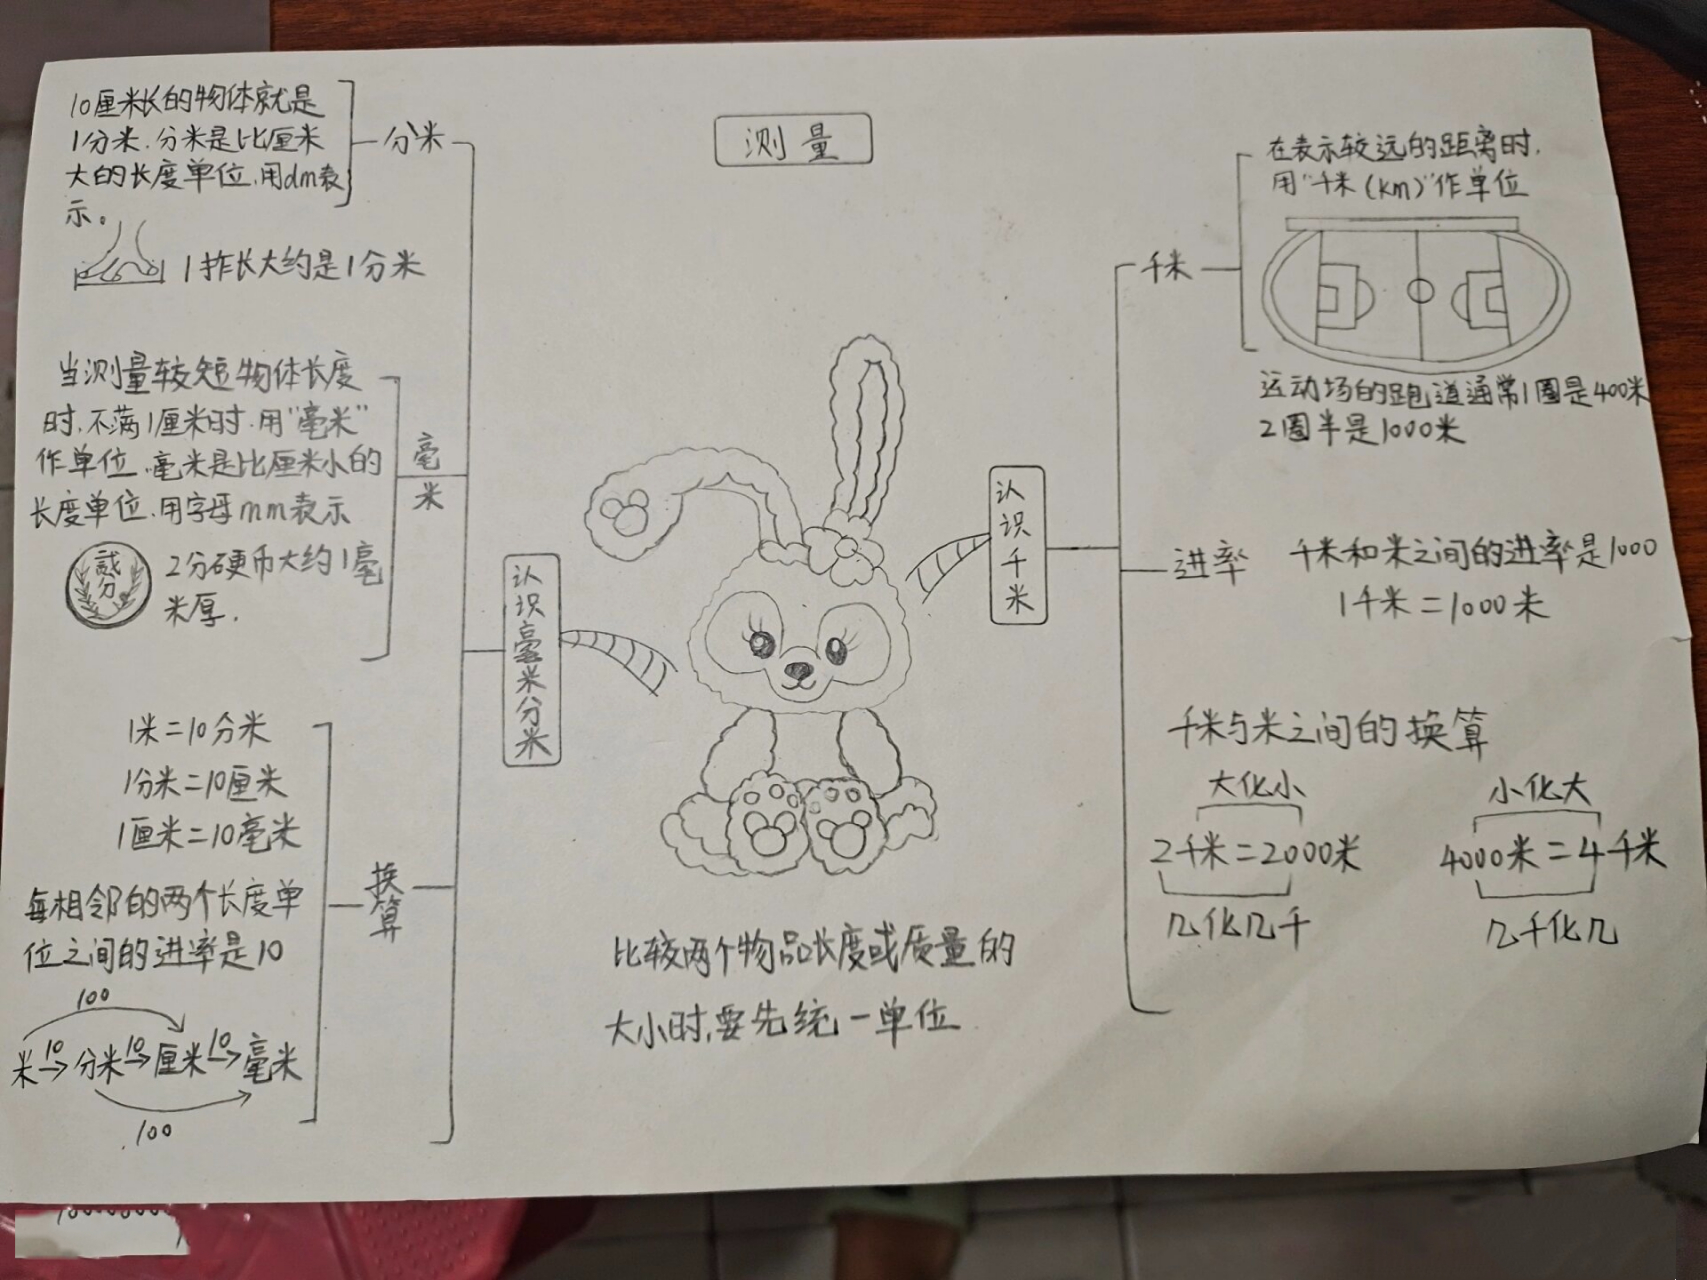 测量
10厘米长的物体就是
1分米.分米是比厘米
大的长度单位.用dm表
示。
分米
1拃长大约是1分米
当测量较短物体长度
时.不满1厘米时.用"毫米"
作单位.毫米是比厘米小的
长度单位.用字母mm表示
毫
米
贰
分
2分硬币大约1毫
米厚.
认识毫米分米
1米=10分米
1分米=10厘米
1厘米=10毫米
每相邻的两个长度单
位之间的进率是10
换算
100
10 10 10
米→分米→厘米→毫米
100
比较两个物品长度或质量的
大小时,要先统一单位
认识千米
千米
在表示较远的距离时.
用"千米(km)"作单位
运动场的跑道通常1圈是400米
2圈半是1000米
进率
千米和米之间的进率是1000
1千米=1000米
千米与米之间的换算
大化小
2千米=2000米
几化几千
小化大
4000米=4千米
几千化几